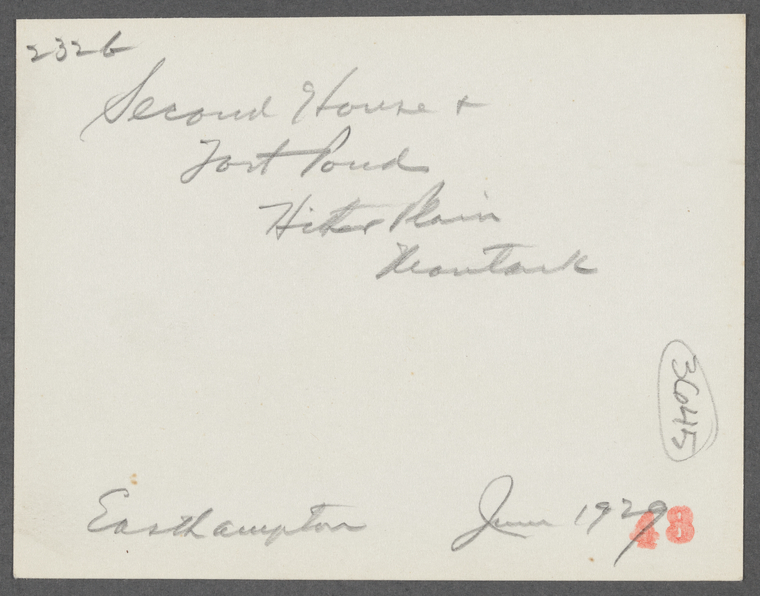 232b
Second House +
Fort Pond
Hither Plain
Montauk
3645
Easthampton June 1929
48